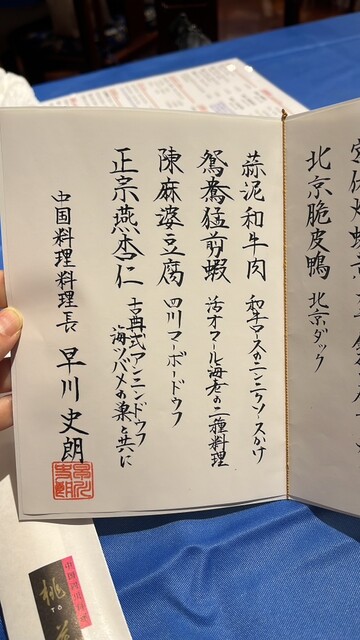 北京脆皮鴨 北京ダック
蒜泥和牛肉 和牛ロースのニンニクソースかけ
鴛鴦猛煎蝦 活オマール海老の二種料理
陳麻婆豆腐 四川マーボードウフ
正宗燕杏仁 古典式アンニンドウフ
海ツバメの巣と共に
中国料理料理長 早川史朗
桃
TO